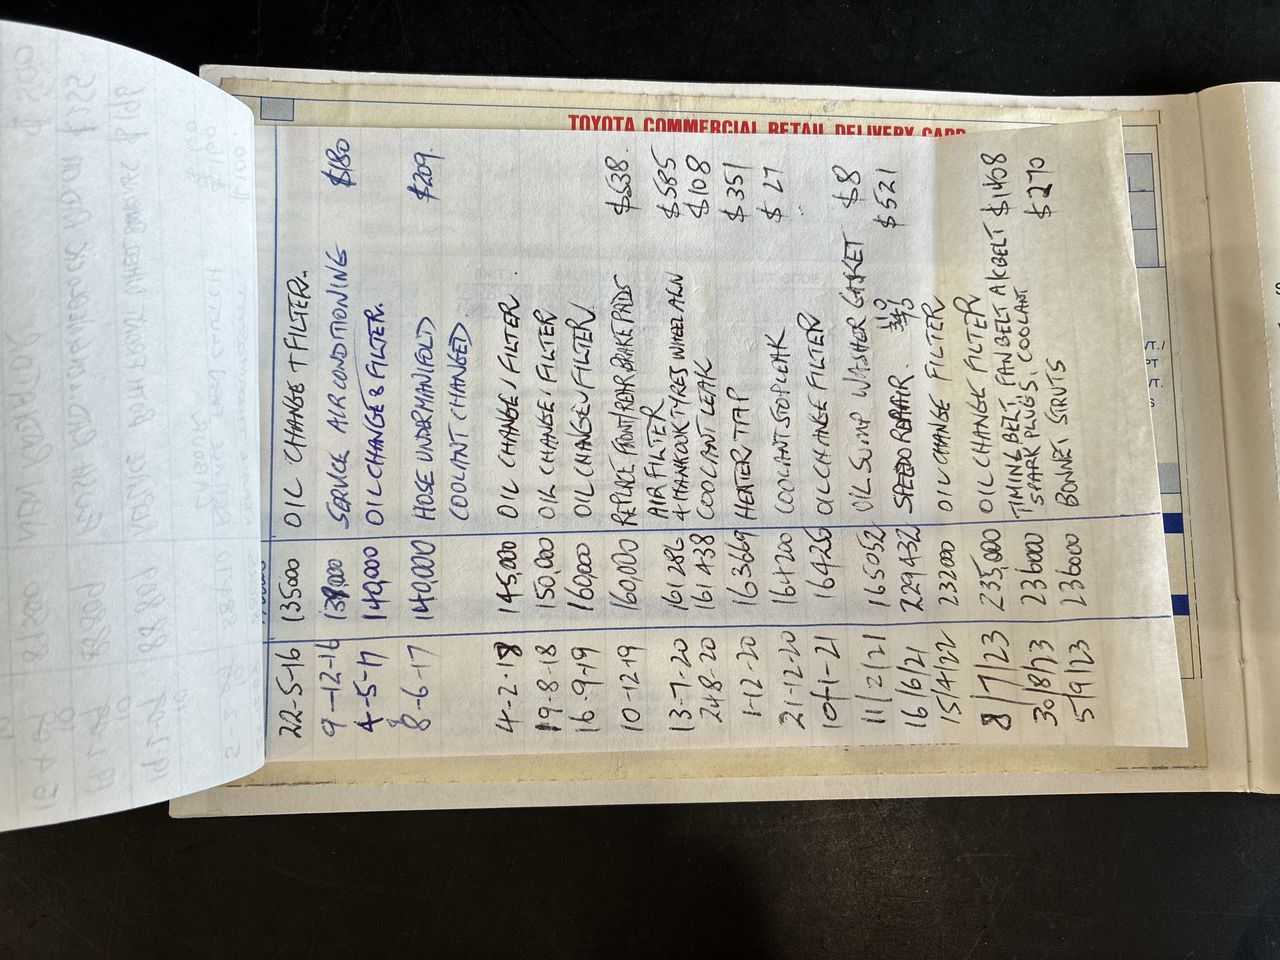 TOYOTA COMMERCIAL RETAIL DELIVERY CARD
22-5-16 135000 OIL CHANGE + FILTER.
9-12-16 SERVICE AIR CONDITIONING $180
4-5-17 140,000 OIL CHANGE & FILTER.
8-6-17 140,000 HOSE UNDER MANIFOLD $209.
COOLANT CHANGED
4-2-18 145,000 OIL CHANGE / FILTER.
19-8-18 150,000 OIL CHANGE / FILTER
16-9-19 160,000 OIL CHANGE / FILTER
10-12-19 160,000 REPLACE FRONT/REAR BRAKE PADS $538.
AIR FILTER
13-7-20 161 286 4 HANKOOK TYRES WHEEL ALN $585
24-8-20 161 438 COOLANT LEAK $108
1-12-20 163669 HEATER TAP $351
21-12-20 164200 COOLANT STOP LEAK $27
10-1-21 16426 OIL CHANGE FILTER
11/2/21 165052 OIL SUMP WASHER GASKET $8
16/6/21 229432 SPEEDO REPAIR. $521
15/4/22 232000 OIL CHANGE FILTER
8/7/23 235,000 OIL CHANGE FILTER
30/8/23 236000 TIMING BELT, FAN BELT A/C BELT $1408
SPARK PLUGS. COOLANT
5/9/23 236000 BONNET STRUTS $270